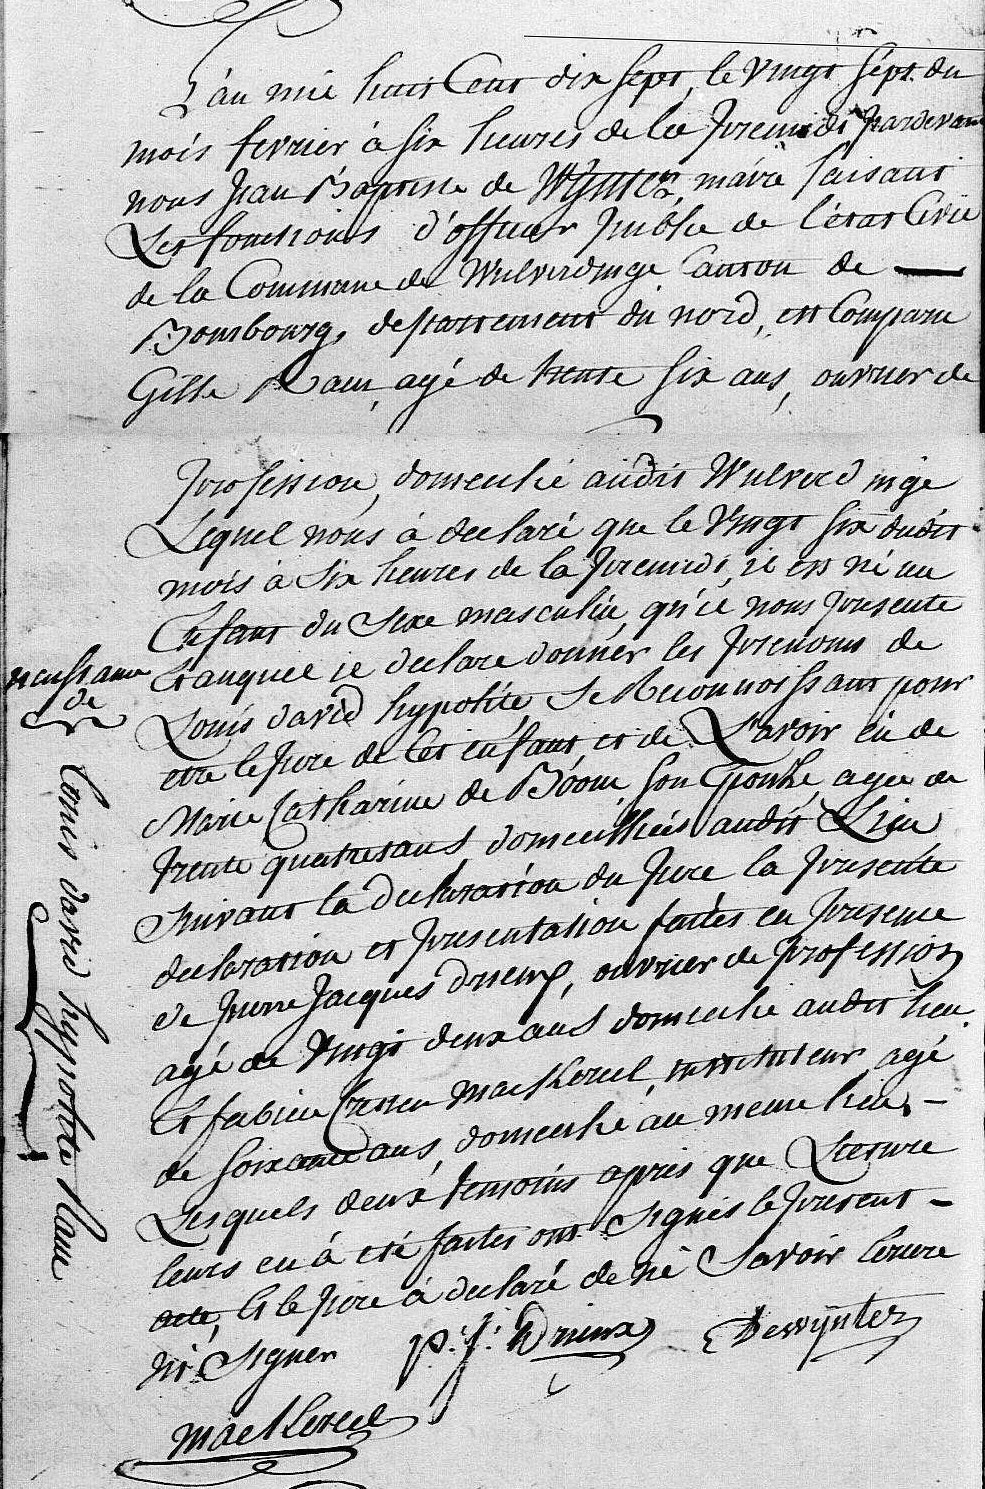 L'an mil huit Cent dix Sept, le Vingt Sept du
mois fevrier à Six heures de la Premidi pardevant
nous Jean Baptiste de Wynter, maire faisant
Les fonctions d'officier public de l'état Civil
de la Commune de Wulverdinge Canton de
Bourbourg, departement du nord, est Comparu
Gille Raeu, agé de trente Six ans, ouvrier de
profession, domicilié audit Wulverdinge
Lequel nous à declaré que le Vingt Six dudit
mois à Six heures de la premidi, il est né un
Enfant du Sexe masculin, qu'il nous presente
Et auquel il declare donner les prenoms de
Louis david hypolite Se Reconnoissant pour
etre le pere de Cet enfant et de L'avoir eu de
Marie Catharine de Boom, Son Epouse, agée de
trente quatre ans domiciliées audit Lieu
Suivant la declaration du pere la presente
declaration et presentation faites en presence
de pierre Jacques drieux, ouvrier de profession
agé de Vingt deux ans domicilié audit lieu
Et fabien Mackereel, instituteur, agé
de Soixante ans, domicilié au meme lieu, -
Lesquels deux temoins après que Lecture
leurs en à été faites ont Signés le present -
acte, Et le pere à declaré de né Savoir Ecrire
ni Signer
P. J. Drieux
Dewynter
Mackereel
naissance
de
Louis david hypolite Raeu